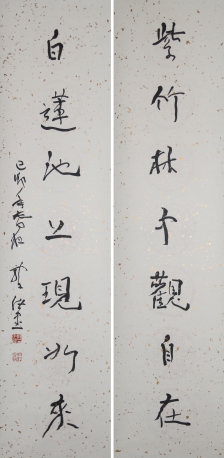 紫竹林中觀自在
白蓮池上現如來
己卯